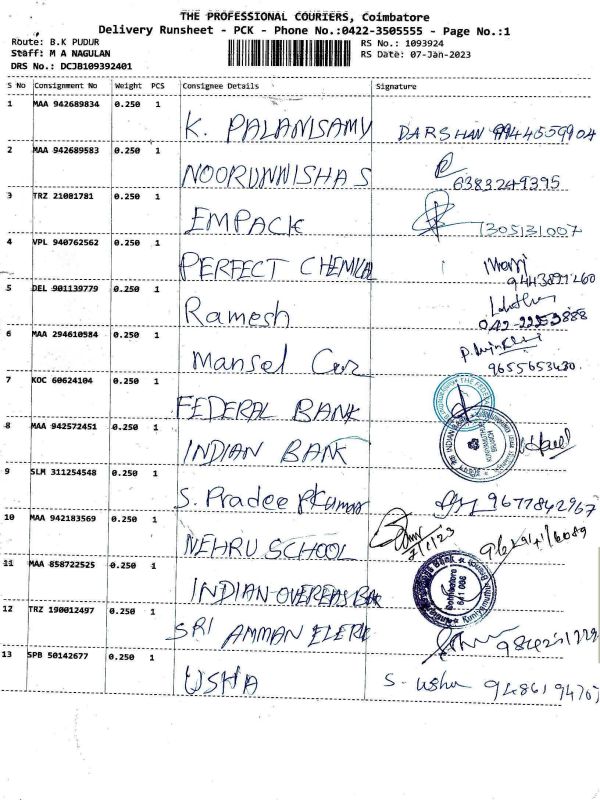 THE PROFESSIONAL COURIERS, Coimbatore
Delivery Runsheet - PCK - Phone No.:0422-3505555 - Page No.:1
Route: B.K PUDUR RS No.: 1093924
Staff: M A NAGULAN RS Date: 07-Jan-2023
DRS No.: DCJB109392401
S No Consignment No Weight PCS Consignee Details Signature
1 MAA 942689834 0.250 1 K. PALANISAMY DARSHAN 9944559904
2 MAA 942689583 0.250 1 NOORUNNISHA S 6383249395
3 TRZ 21081781 0.250 1 EMPACK 7305131007
4 VPL 940762562 0.250 1 PERFECT CHEMICAL
5 DEL 901139779 0.250 1 Ramesh
6 MAA 294610584 0.250 1 Mansel Cer 9655653430
7 KOC 60624104 0.250 1 FEDERAL BANK
8 MAA 942572451 0.250 1 INDIAN BANK
9 SLM 311254548 0.250 1 S. Pradeepkumar 9677842967
10 MAA 942183569 0.250 1 NEHRU SCHOOL 7/1/23
11 MAA 858722525 0.250 1 INDIAN OVERSEAS BAK
12 TRZ 190012497 0.250 1 SRI AMMAN ELETRIC
13 SPB 50142677 0.250 1 USHA S. usha